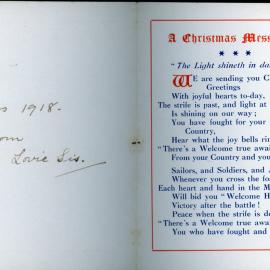 s 1918-
om
Lovie Sis.
A Christmas Mess
"The Light shineth in da
WE are sending you C
Greetings
With joyful hearts to-day,
The strife is past, and light at
Is shining on our way;
You have fought for your
Country,
Hear what the joy bells rin
"There's a Welcome true awai
From your Country and you
Sailors, and Soldiers, and A
Whenever you cross the fo
Each heart and hand in the M
Will bid you "Welcome H
Victory after the battle!
Peace when the strife is do
"There's a Welcome true awai
You who have fought and